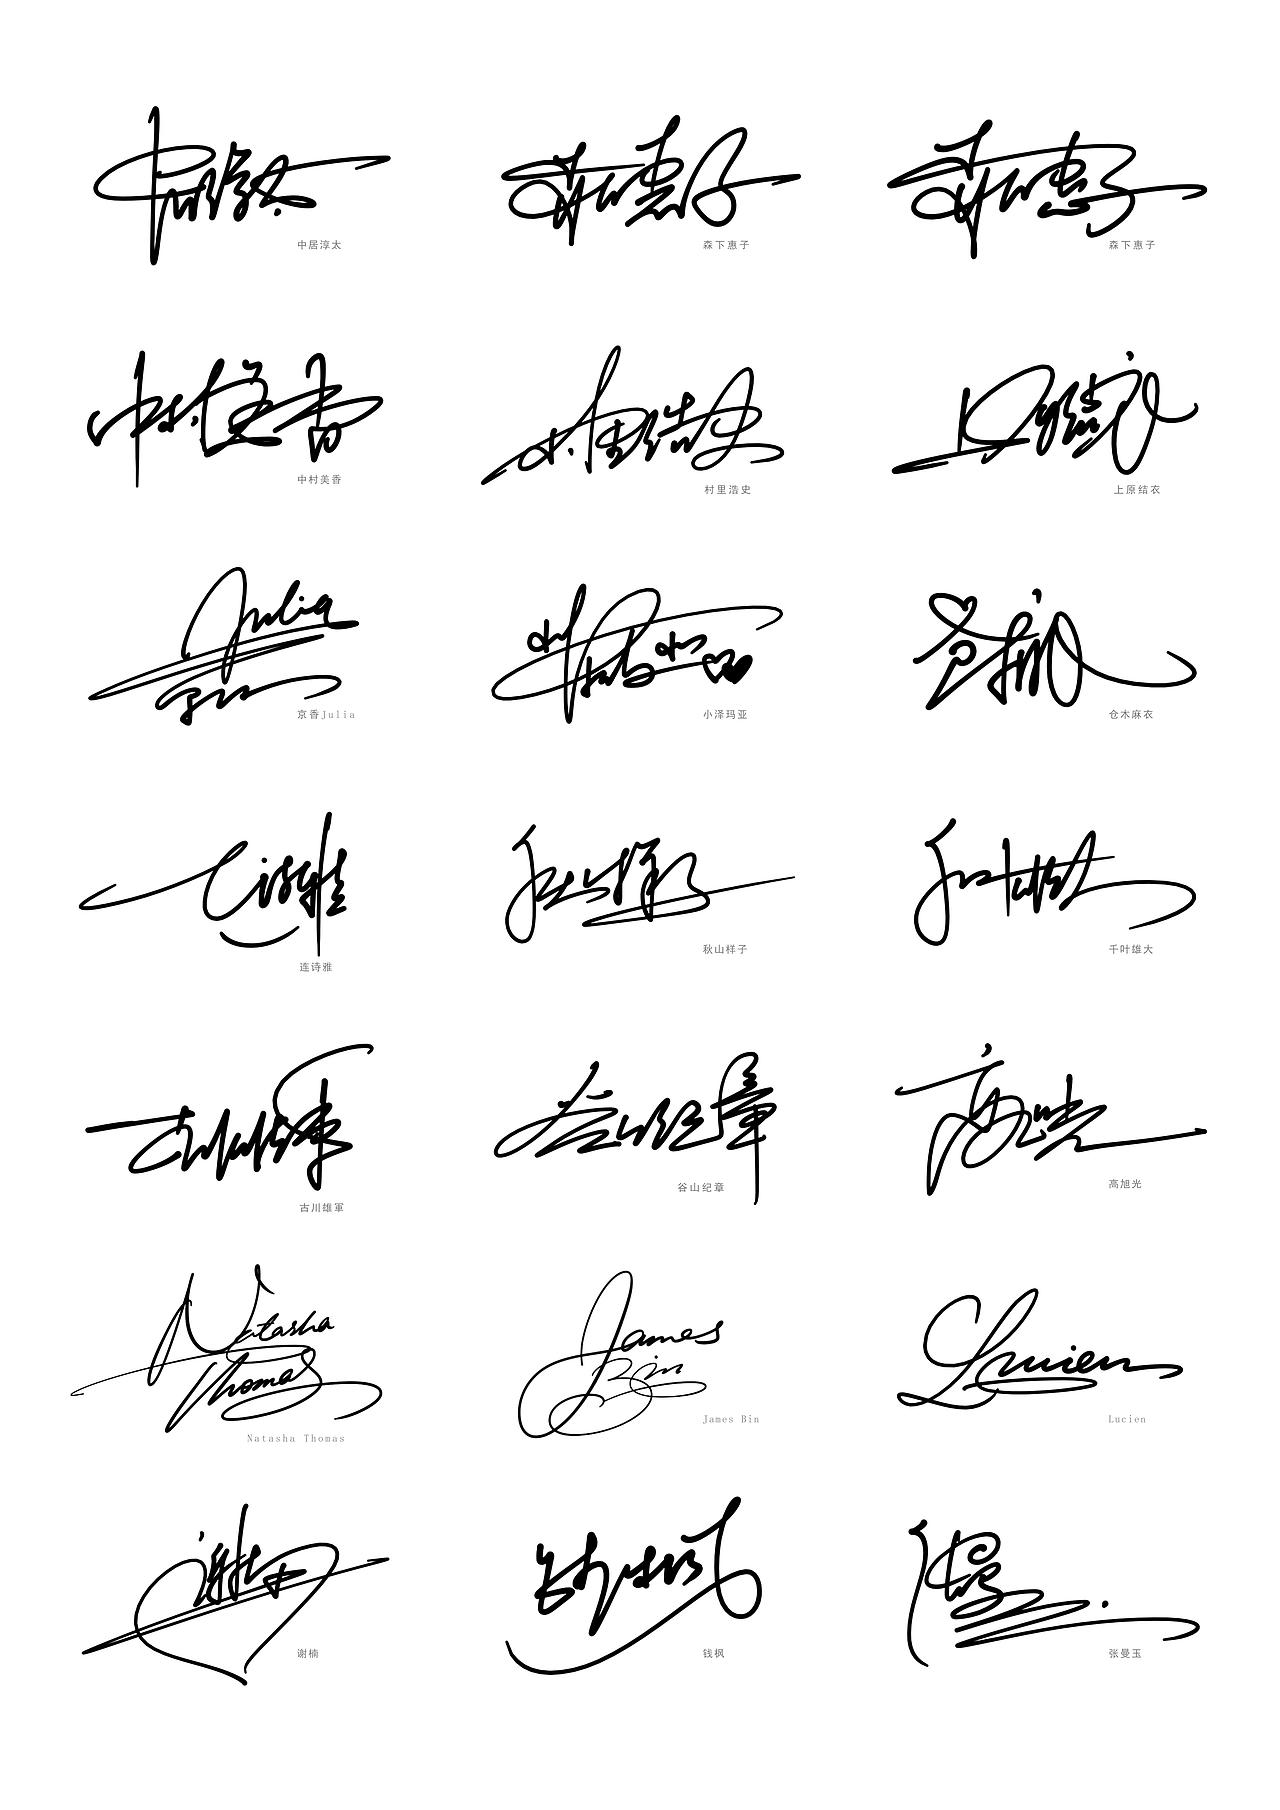 中居淳太
森下惠子
森下惠子
中村美香
村里浩史
上原结衣
Julia
京香Julia
小泽玛亚
仓木麻衣
连诗雅
秋山样子
千叶雄大
古川雄軍
谷山纪章
高旭光
Natasha
Thomas
Natasha Thomas
James
Bin
James Bin
Lucien
Lucien
谢楠
钱枫
张曼玉